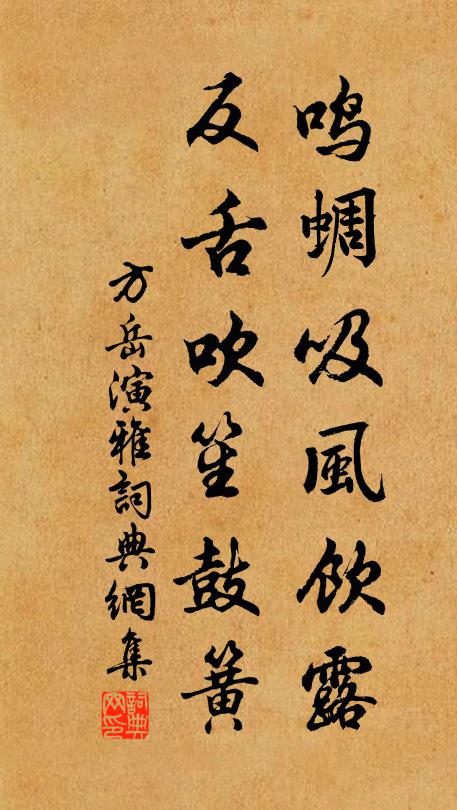 鸣蜩吸風飲露
反舌吹笙鼓簧
方岳演雅詞典網集
詞典网印